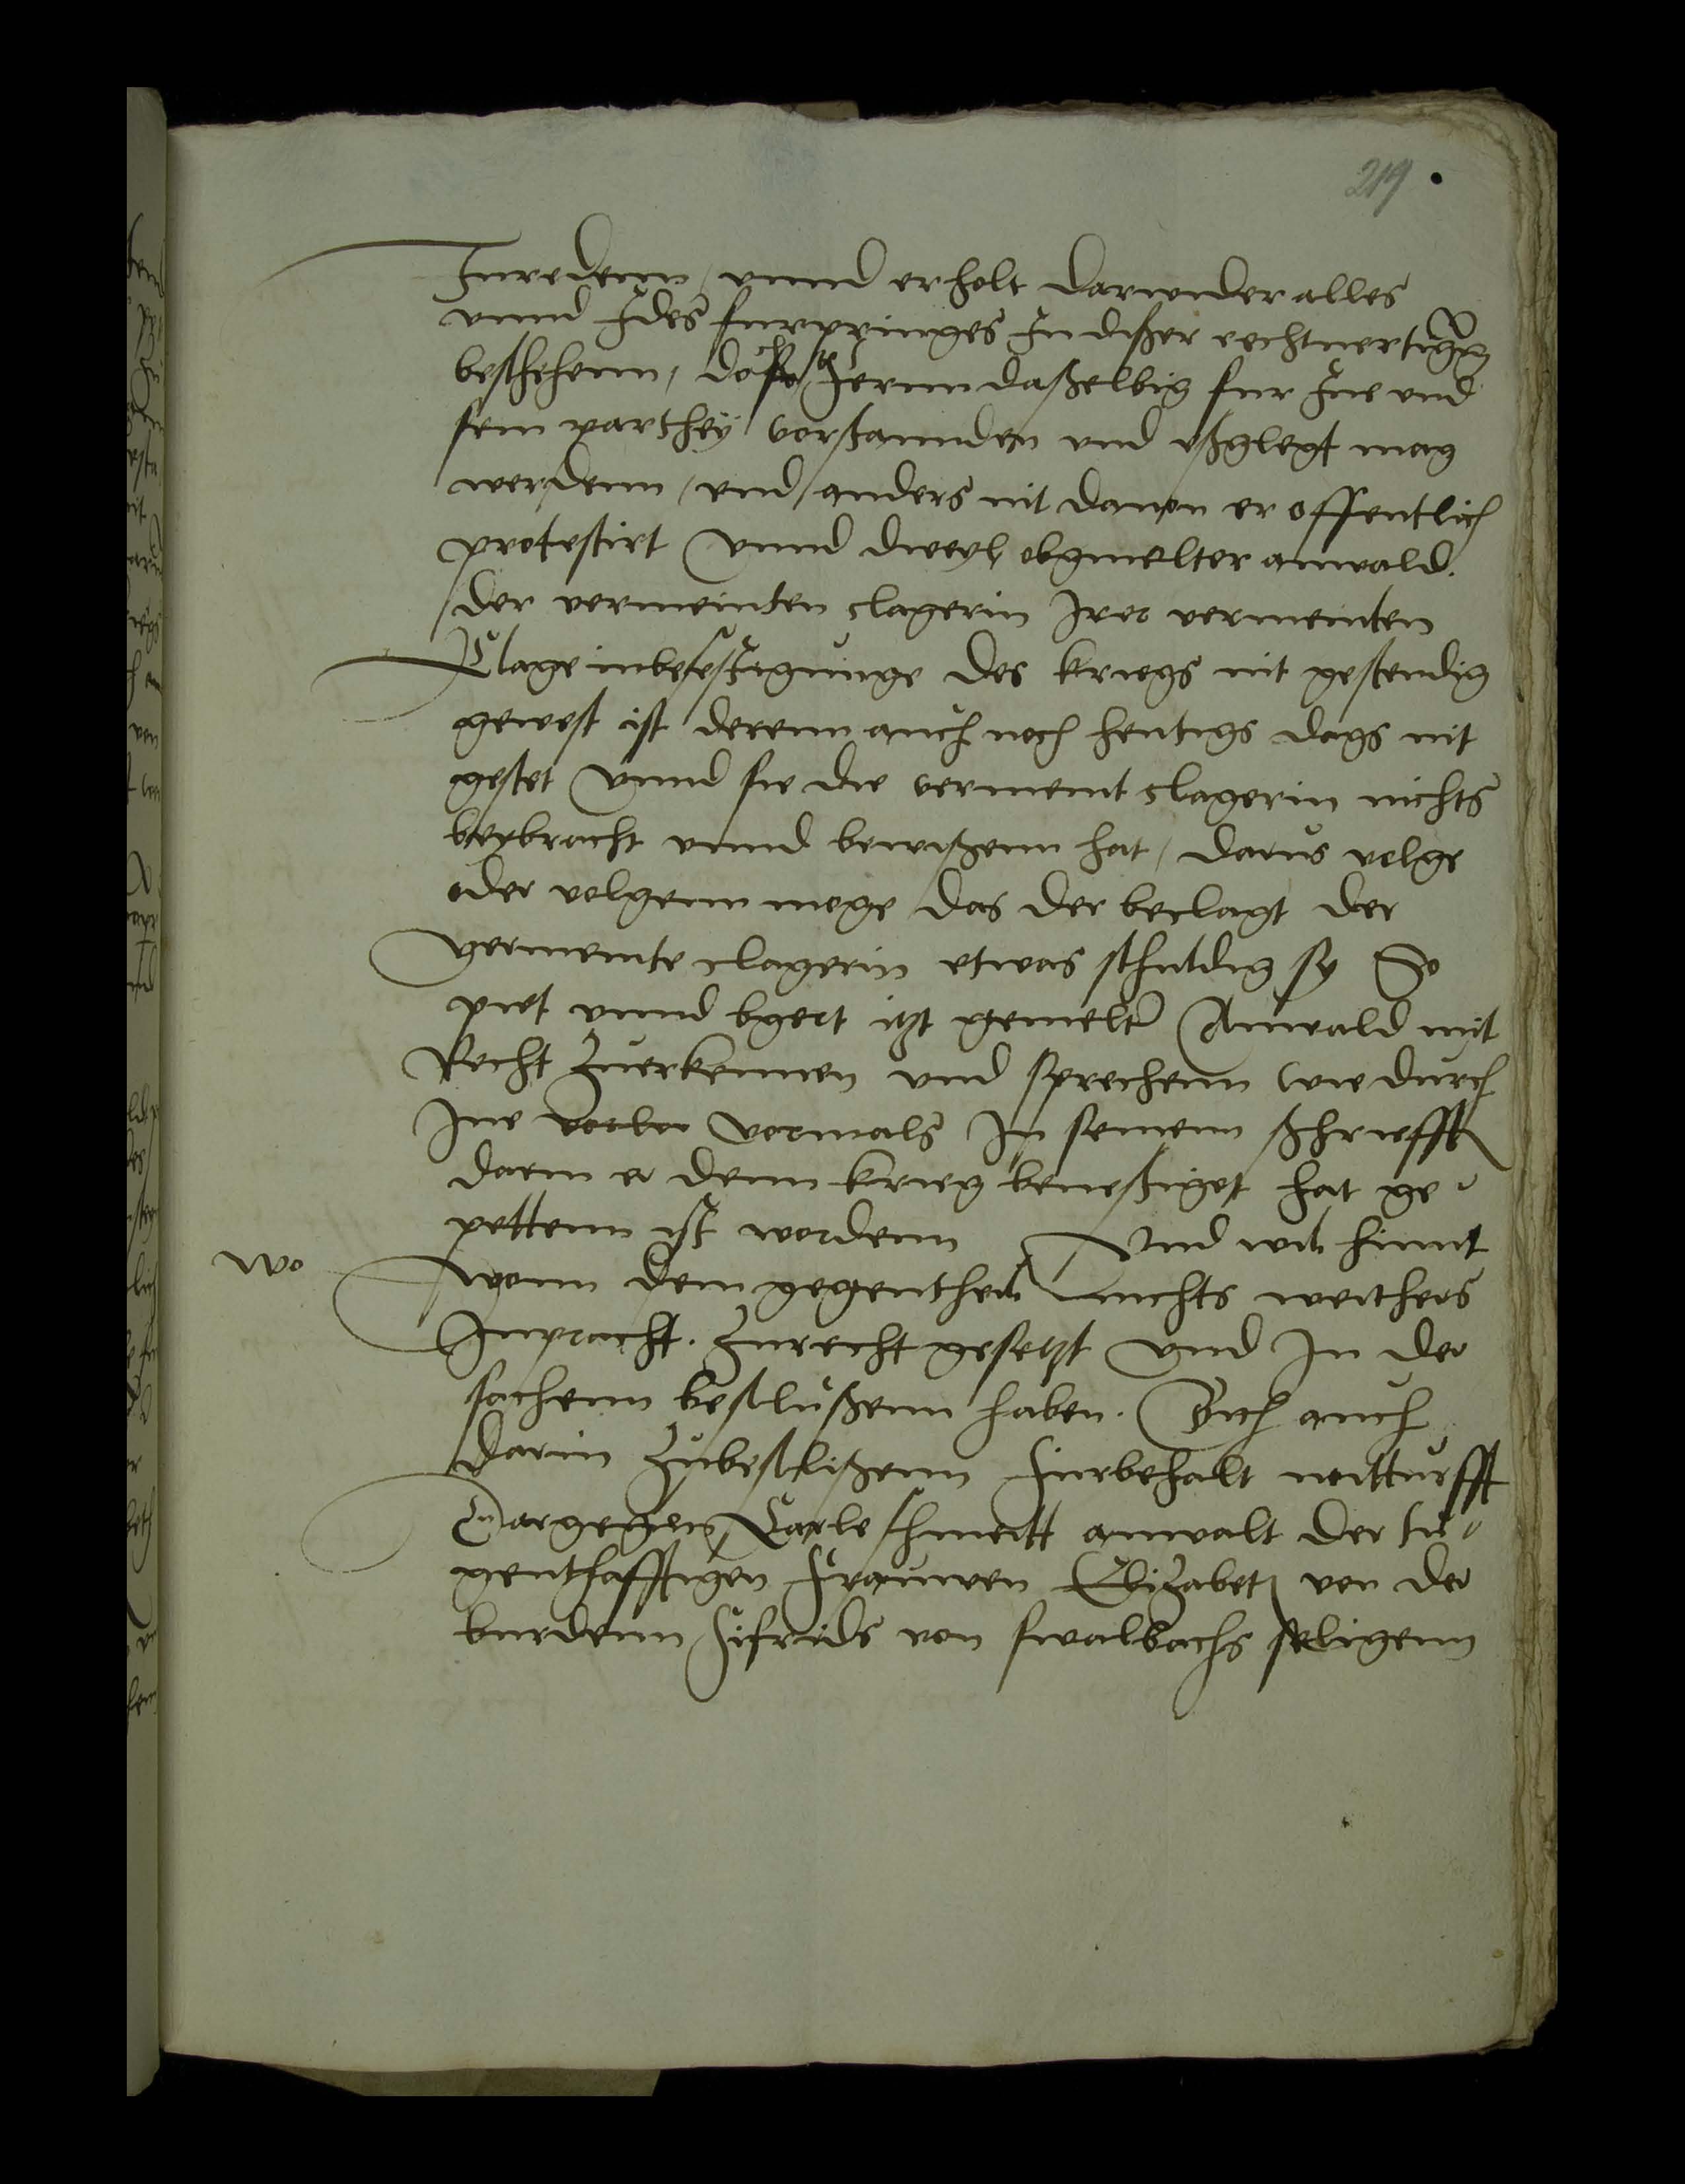 219
Inredenn / vnnd erholt darwider alles
vnnd Jdes furpringes Jn dißer rechtuertigung
beschehenn / doch so ferrnn daßelbig fur Jne vnd
sein parthey verstannden vnd vßgelegt mag
werdenn / vnd anders nit dauon er offentlich
protestirt Vnnd dweyl obgmelter anwald
der vermeinten clagerin Jrer vermeinten
Clage in befestigunge des kriegs nit gestendig
gewest ist derenn auch noch heutigs dags nit
gestet Vnnd sie die vermeint clagerin nichts
beybracht vnnd bewißenn hat / darus volge
oder volgenn moge das der beclagt der
vermeinte clagerin etwas schuldig sy So
piet vnnd bgert itzt gemelter Anwald mit
Recht Zuerkennen vnd sprechenn wie durch
Jne vormals Jn seinenn schriefften
darin er denn krieg beueßtiget hat ge-
pettenn ist wordenn Vnd wil himit
wo vonn dem gegentheyl nichts weithers
Jnpracht. Zurecht gesetzt Vnd Jn der
sachenn beschlußenn haben. Sich auch
darin Zubeschlißenn Furbehalt notturfft
Dargegen Carle schmitt anwalt der tu-
genthafftigen Frauwen Elizabet von der
burdenn Sifrids von swalbachs seligenn